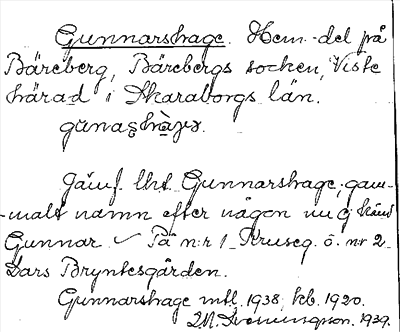 Gunnarshage. Hem.-del på
Bäreberg, Bärebergs socken, Viste
härad i Skaraborgs län.
Jämf. lht. Gunnarshage, gam-
-malt namn efter någon nu ej känd
Gunnar. På n:r 1 Kruseg. ö. nr 2
Lars Bryntesgården.
Gunnarshage mtl. 1938, kb. 1920.